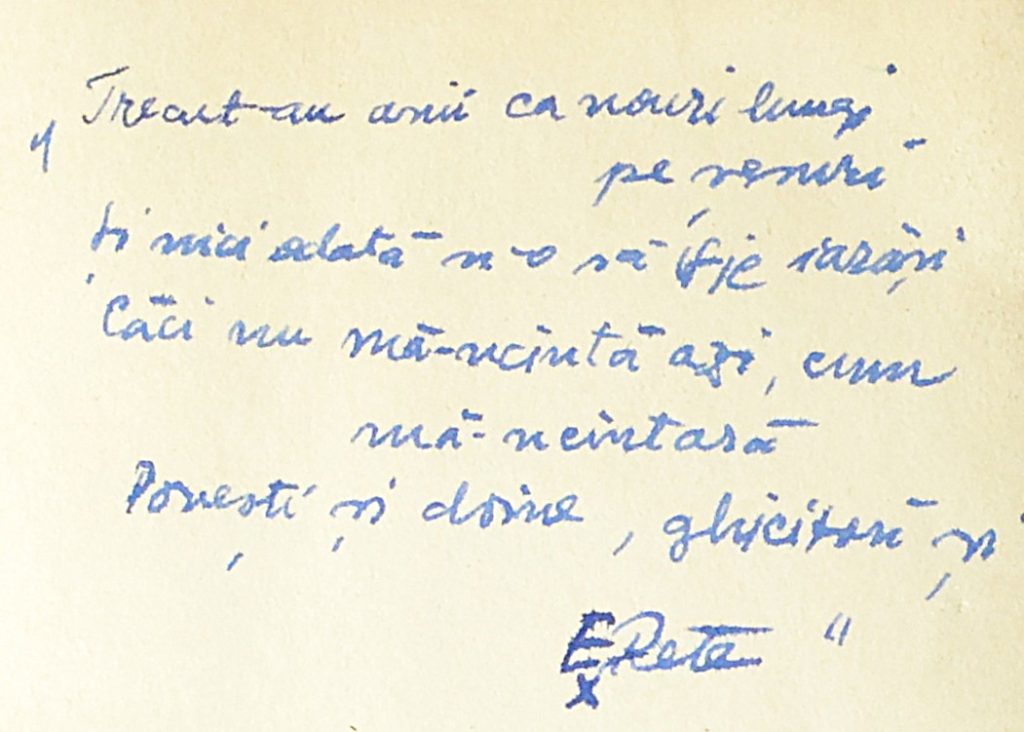 „Trecut-au anii ca nouri lungi
pe șesuri
Și nici odată n-o să fie iarăși
Căci nu mă-ncîntă azi, cum
mă-ncîntară
Povești și doine, ghicitori și
E Reta"
x